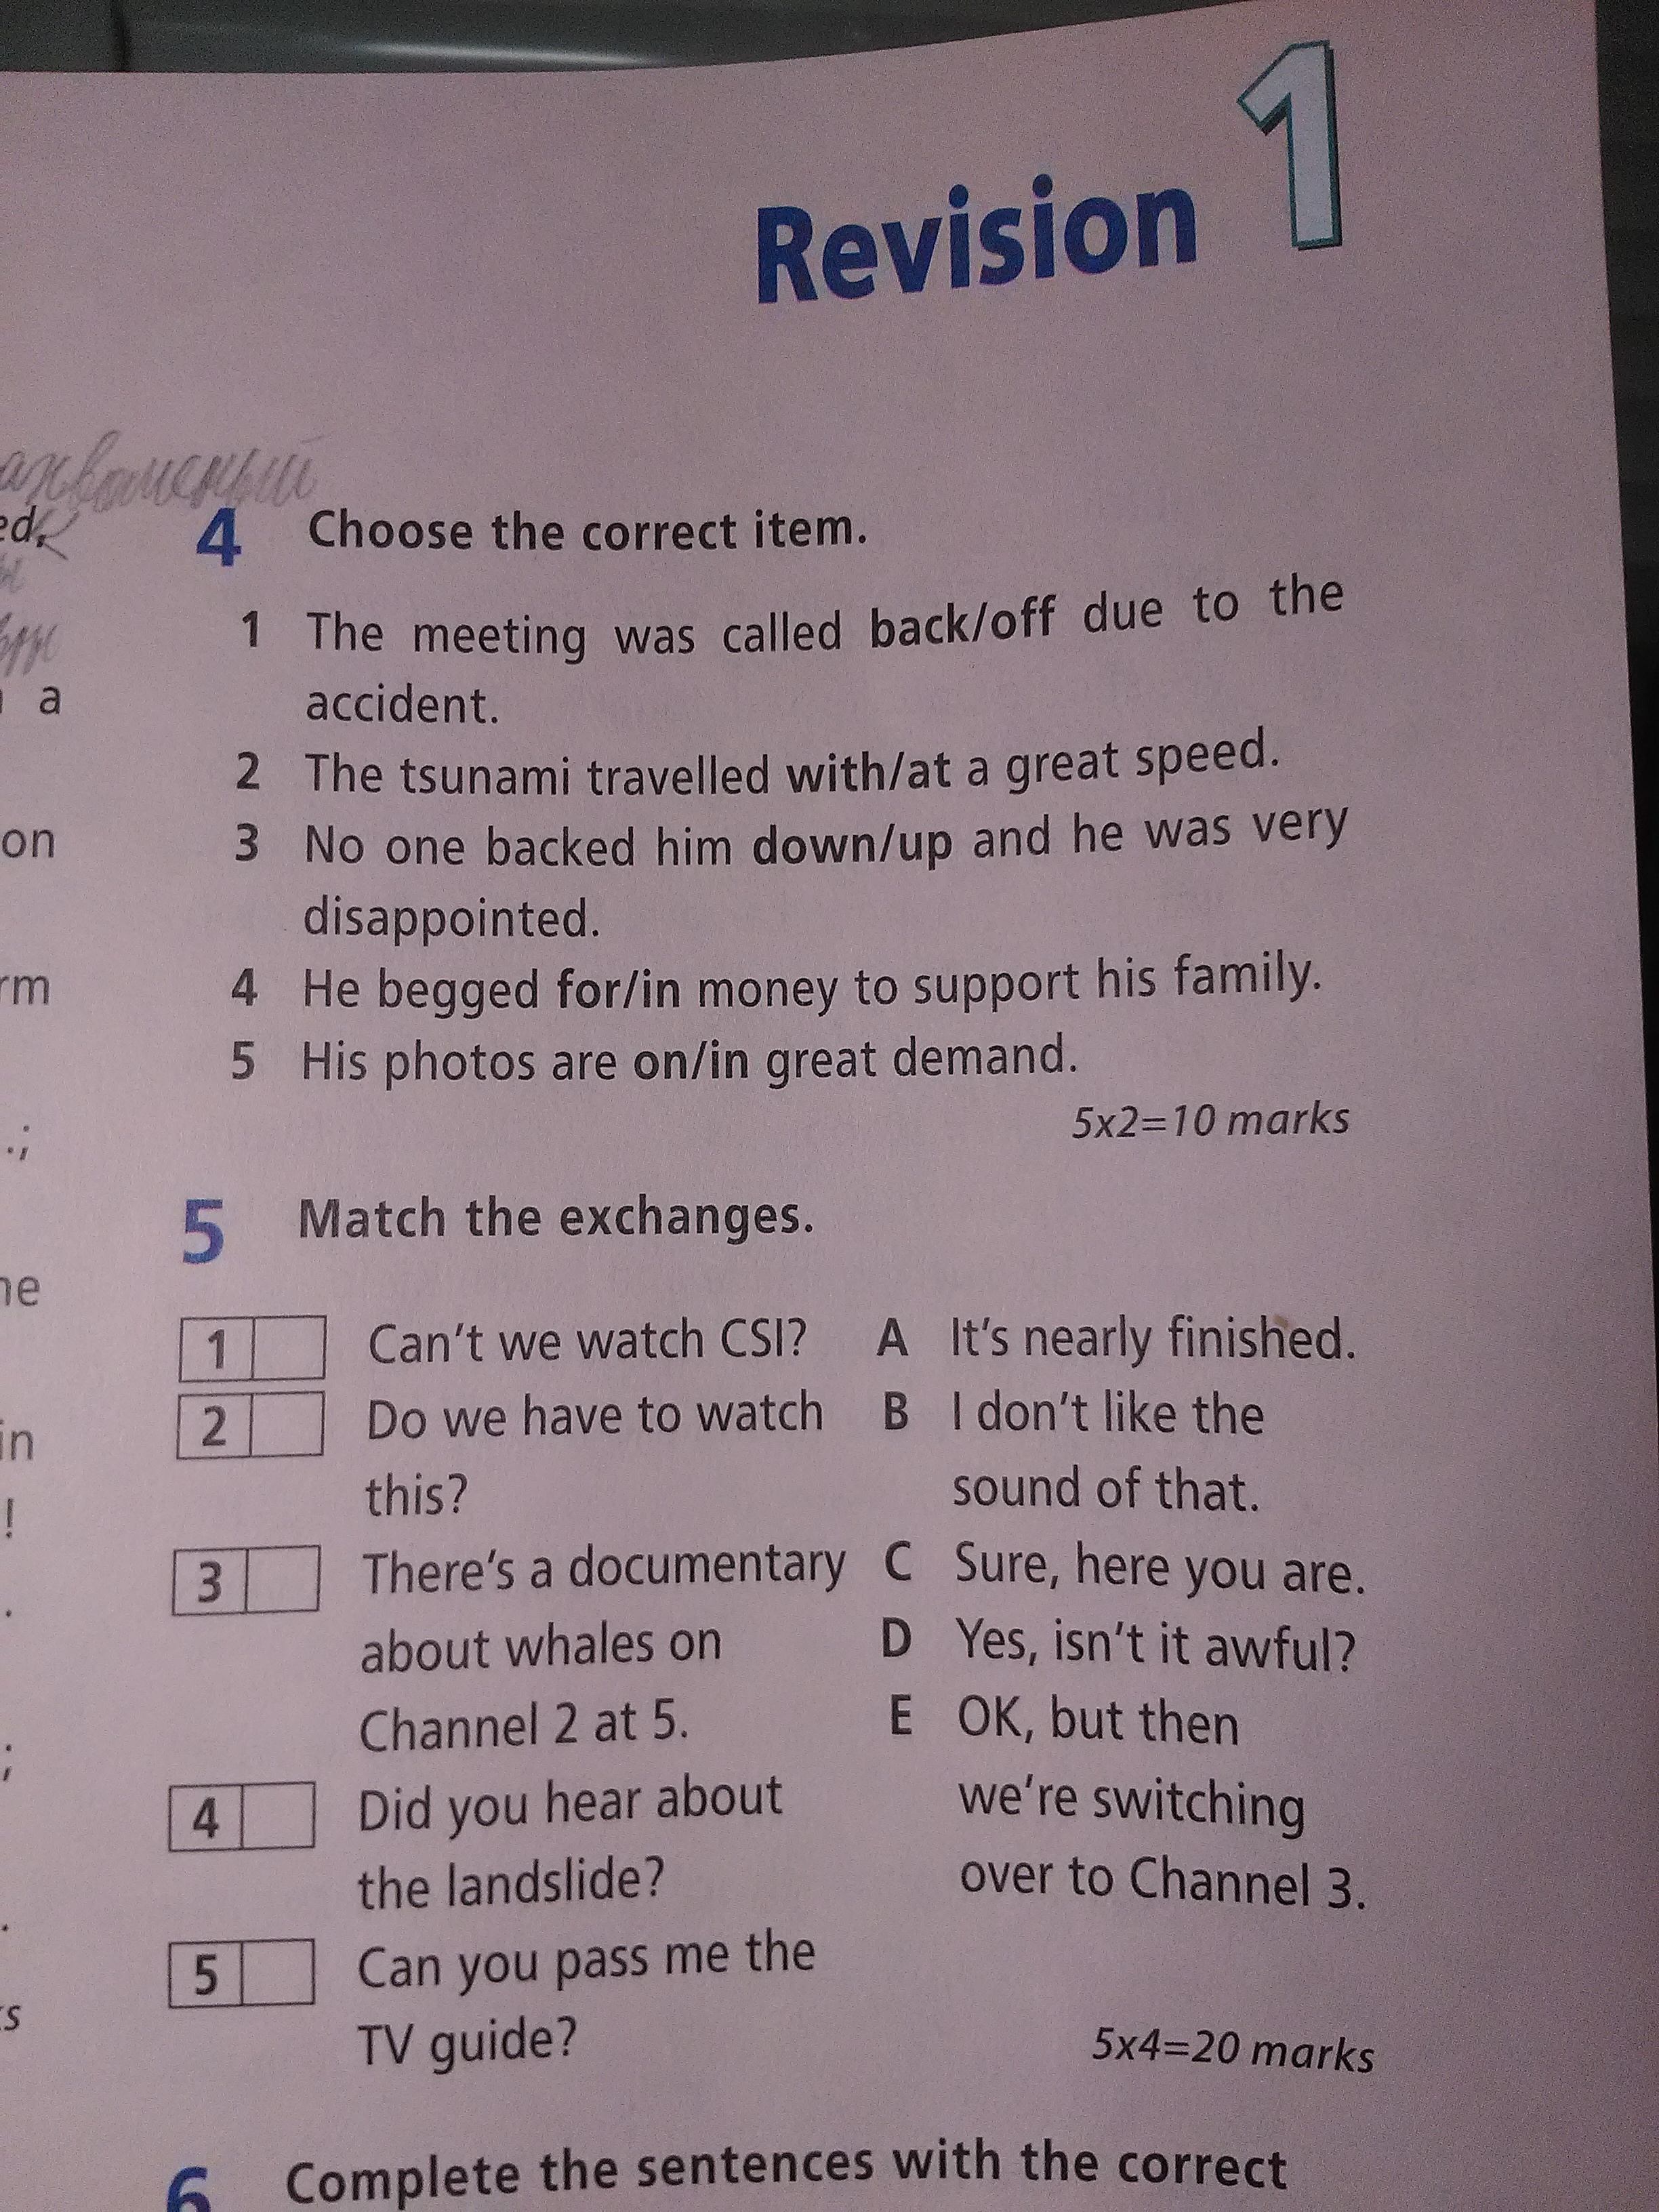 Revision 1
4 Choose the correct item.
1 The meeting was called back/off due to the
accident.
2 The tsunami travelled with/at a great speed.
3 No one backed him down/up and he was very
disappointed.
4 He begged for/in money to support his family.
5 His photos are on/in great demand.
5x2=10 marks
5 Match the exchanges.
1 Can't we watch CSI?
2 Do we have to watch
this?
3 There's a documentary
about whales on
Channel 2 at 5.
4 Did you hear about
the landslide?
5 Can you pass me the
TV guide?
A It's nearly finished.
B I don't like the
sound of that.
C Sure, here you are.
D Yes, isn't it awful?
E OK, but then
we're switching
over to Channel 3.
5x4=20 marks
6 Complete the sentences with the correct